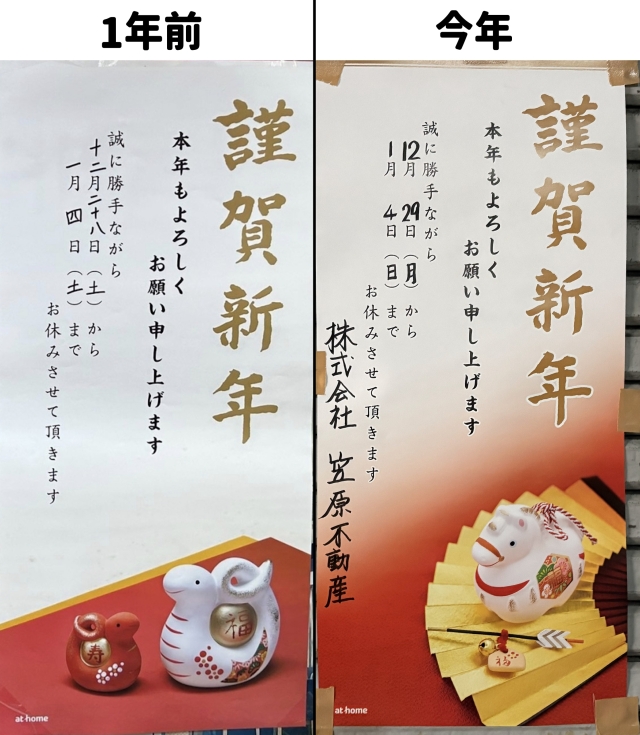 1年前
謹賀新年
本年もよろしく
お願い申し上げます
誠に勝手ながら
十二月二十八日（土）から
一月 四 日（土）まで
お休みさせて頂きます
寿
福
at home
今年
謹賀新年
本年もよろしく
お願い申し上げます
誠に勝手ながら
12月 29日（月）から
1月 4日（日）まで
お休みさせて頂きます
株式会社 笠原不動産
福
at home